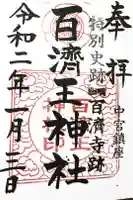 奉拝
中宮鎮座
特別史跡百済寺跡
百濟王神社
令和二年一月三日